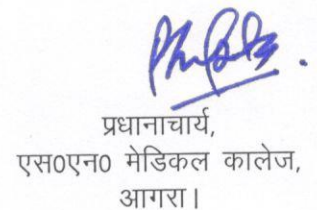 प्रधानाचार्य,
एस०एन० मेडिकल कालेज,
आगरा।